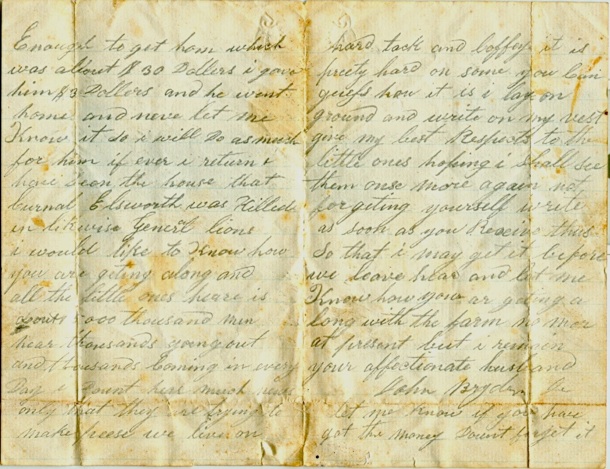 Enough to get hom which
was about $30 Dollers i gave
him $3 Dollers and he went
home and never let me
Know it so i will Do as much
for him if ever i return
have seen the house that
curnal Elsworth was Killed
in likwise Generel lions
i would like to Know how
you are geting along and
all the little ones heare is
000 thousand men
hear thousands going out
and thousands Coming in every
Day i Dount hear much news
only that they are trying to
make peese we live on
hard tack and Coffey it is
preety hard on some you Can
guess how it is i lay on
ground and write on my vest
give my best Respects to the
little ones hoping i Shall see
them onse more again not
forgeting yourself write
as soon as you Receive this
So that i may get it before
we leave hear and let me
Know how you ar geting a
long with the farm no more
at present but i remain
your affectionate husband
John Bryden
let me Know if you have
got the money Dount forget it